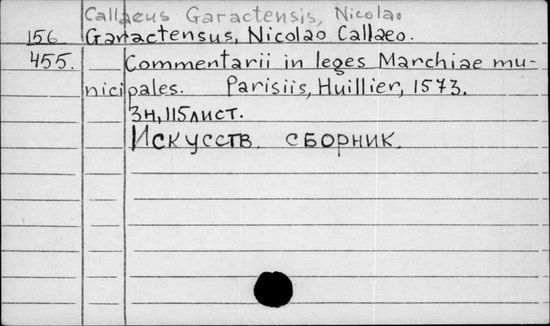 Callaeus Garactensis, Nicolao
156 Garactensus, Nicolao Callaeo.
455. Commentarii in leges Marchiae mu-
nicipales. Parisiis, Huillier, 1573.
3н, 115лист.
Искусств. сборник.